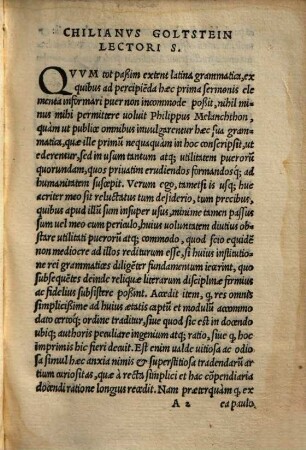 CHILIANVS GOLTSTEIN
LECTORI S.
QVVM tot paßim extent latina grammatica, ex
quibus ad percipiẽda hæc prima sermonis ele
menta informari puer non incommode poßit, nihil mi
nus mihi permittere uoluit Philippus Melanchthon,
quàm ut publicæ omnibus inuulgarentur hæc sua gram
matica, quæ ille primũ nequaquam in hoc conscripsit, ut
ederentur, sed in usum tantum atq; utilitatem puerorũ
quorundam, quos priuatim erudiendos formandosq́; ad
humanitatem suscepit. Verum ego, tametsi is usq; hu
c acriter meo sit reluctatus tum desiderio, tum precibus,
quibus apud illũ sum insuper usus, minime tamen passus
sum uel meo cum periculo, huius uoluntatem diutius ob
stare utilitati puerorũ atq; commodo, quod scio equidẽ
non mediocre ad illos rediturum esse, si huius institutio
ne rei grammaticæ diligẽter fundamenum iecerint, quo
subsequẽtes deinde reliquæ literarum disciplinæ firmius
ac fidelius subsistere possint. Accedit item, q res omnis
simplicißime ad huius ætatis captũ et modulũ accommo
dato certoq́; ordine traditur, siue quod sic est in docendo
ubiq; authoris peculiare ingenium atq; ratio, siue q hoc
imprimis hic fieri decuit. Est enim ualde uitiosa ac odio
sa simul hæc anxia nimis & superstitiosa tradendarũ ar
tium curiositas, quæ à recta simplici et hac cõpendiaria
docendi ratione longius recedit. Nam præterquàm q ex
A 2 ea paulo